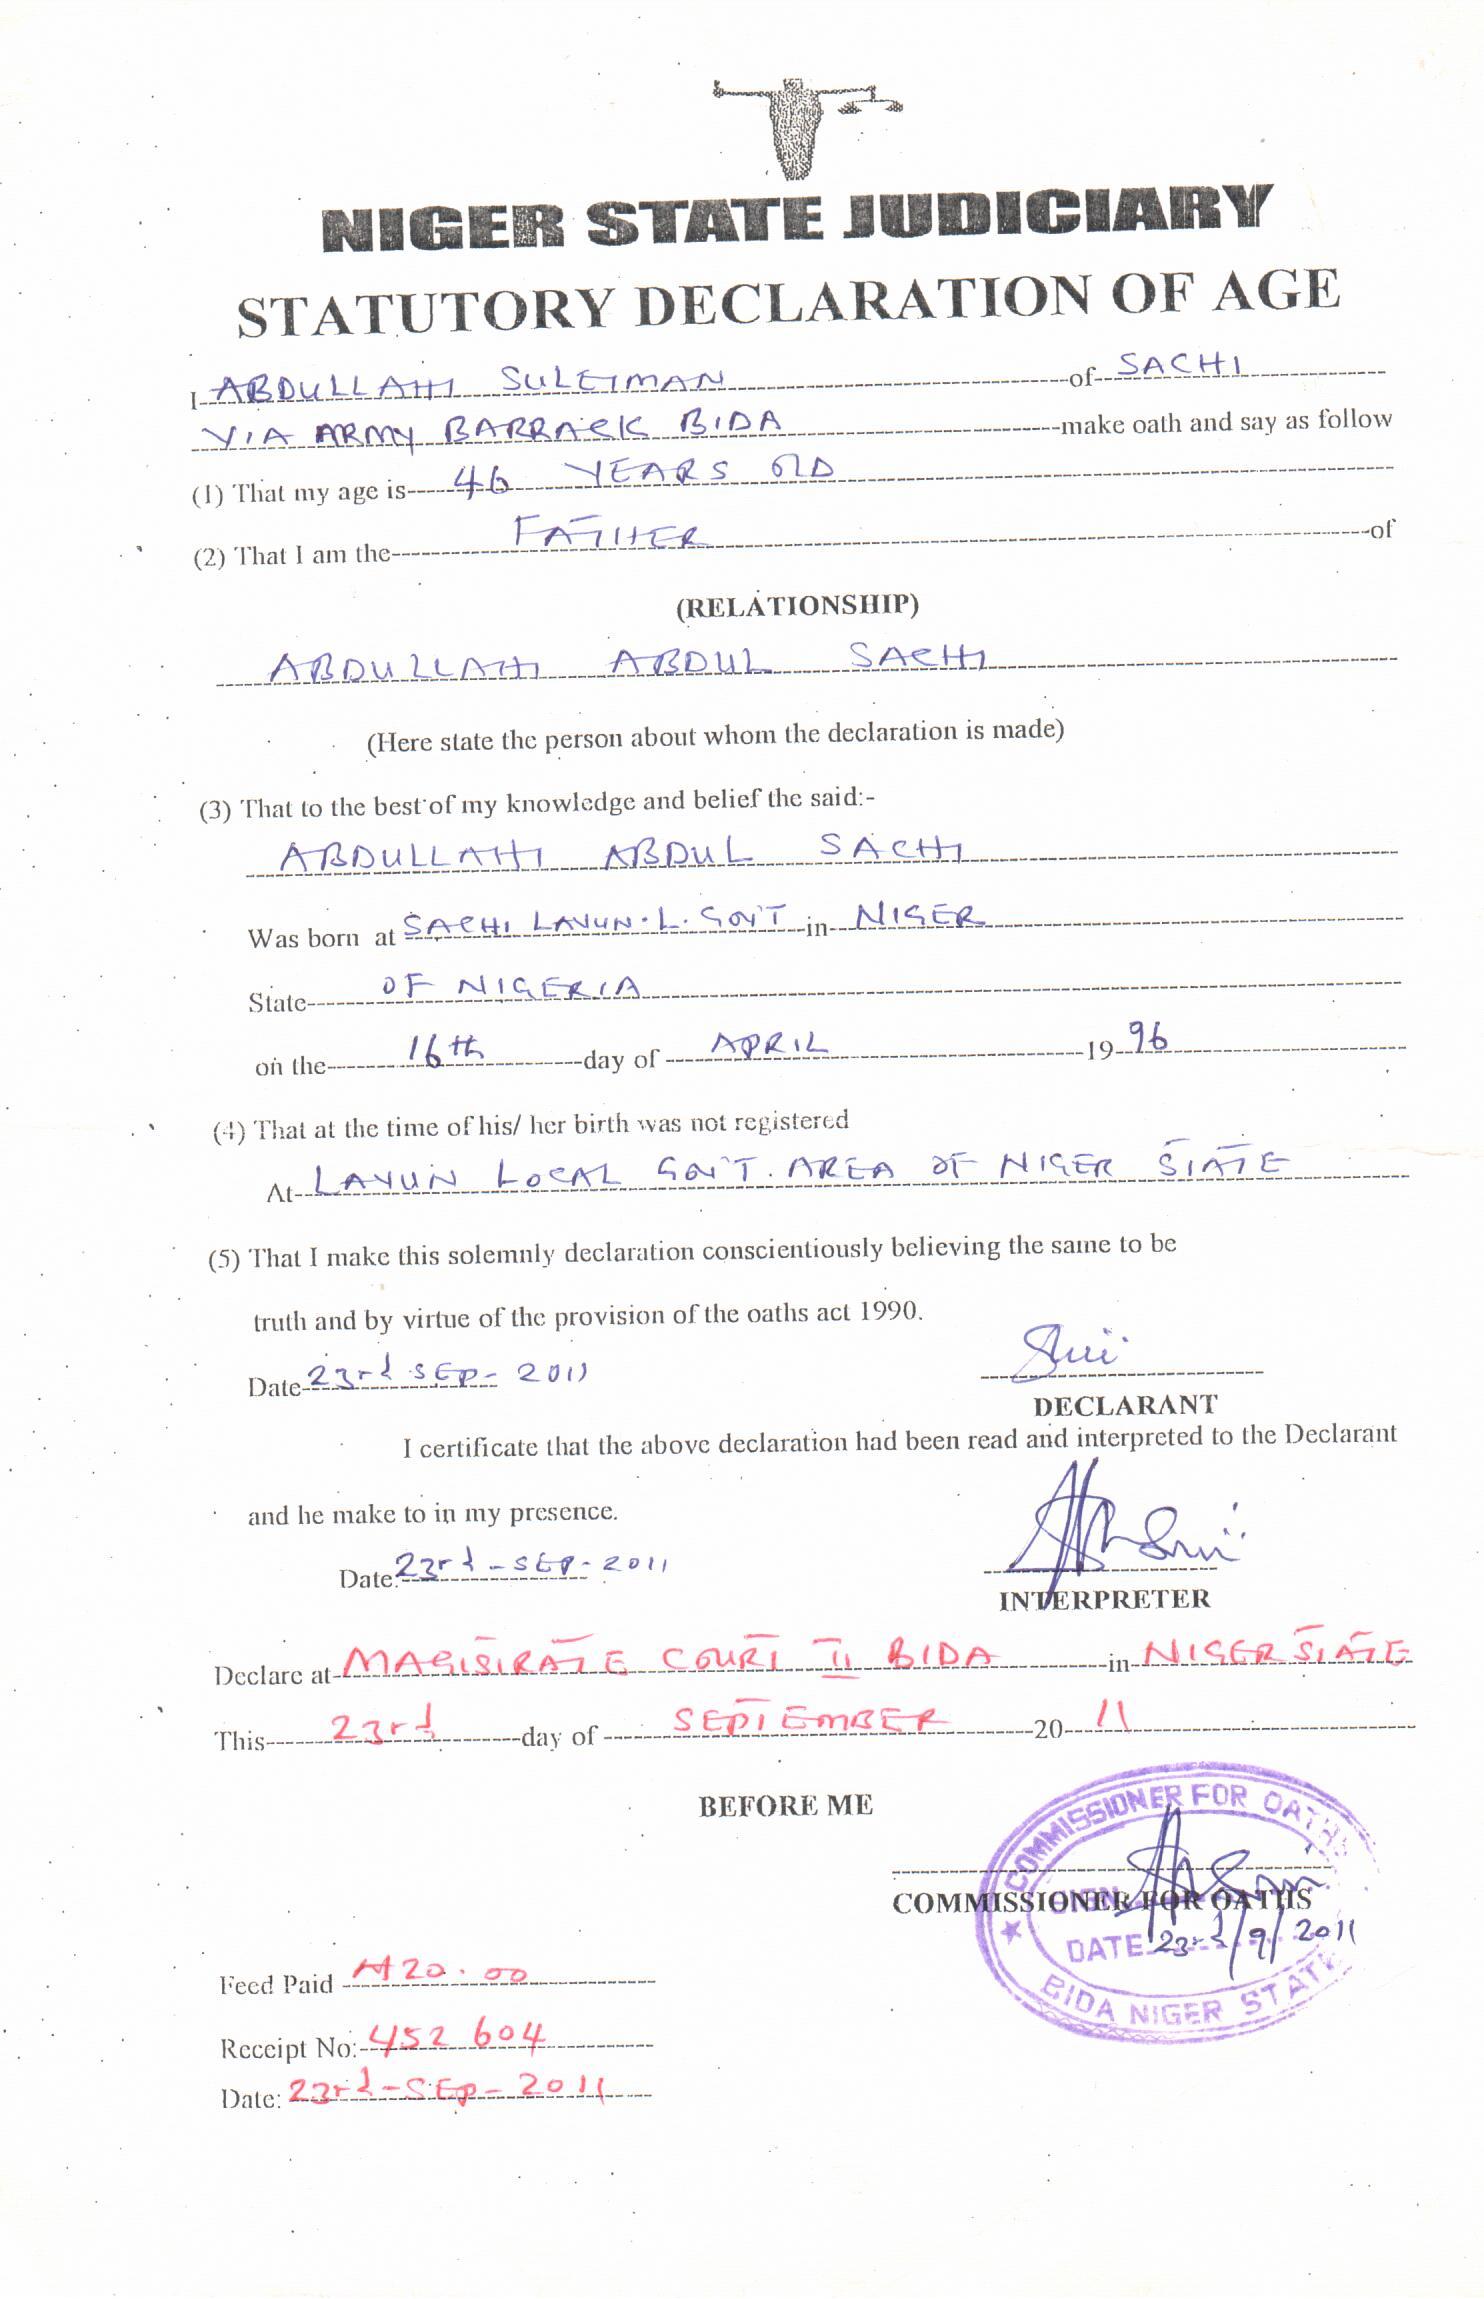 NIGER STATE JUDICIARY
STATUTORY DECLARATION OF AGE
I ABDULLAHI SULEIMAN of SACHI
VIA ARMY BARRACK BIDA make oath and say as follow
(1) That my age is 46 YEARS OLD
(2) That I am the FATHER of
(RELATIONSHIP)
ABDULLAHI ABDUL SACHI
(Here state the person about whom the declaration is made)
(3) That to the best of my knowledge and belief the said:-
ABDULLAHI ABDUL SACHI
Was born at SACHI LAVUN. L. GOV'T in NIGER
State OF NIGERIA
on the 16th day of APRIL 1996
(4) That at the time of his/ her birth was not registered
At LAVUN LOCAL GOV'T. AREA OF NIGER STATE
(5) That I make this solemnly declaration conscientiously believing the same to be
truth and by virtue of the provision of the oaths act 1990.
Date 23rd SEP- 2011
DECLARANT
I certificate that the above declaration had been read and interpreted to the Declarant
and he make to in my presence.
Date: 23rd-SEP-2011
INTERPRETER
Declare at MAGISTRATE COURT II BIDA in NIGER STATE
This 23rd day of SEPTEMBER 2011
BEFORE ME
COMMISSIONER FOR OATHS
COMMISSIONER FOR OATHS
SIGN
DATE 23rd/9/2011
BIDA NIGER STATE
Feed Paid ₦20.00
Receipt No: 452604
Date: 23rd-SEP-2011